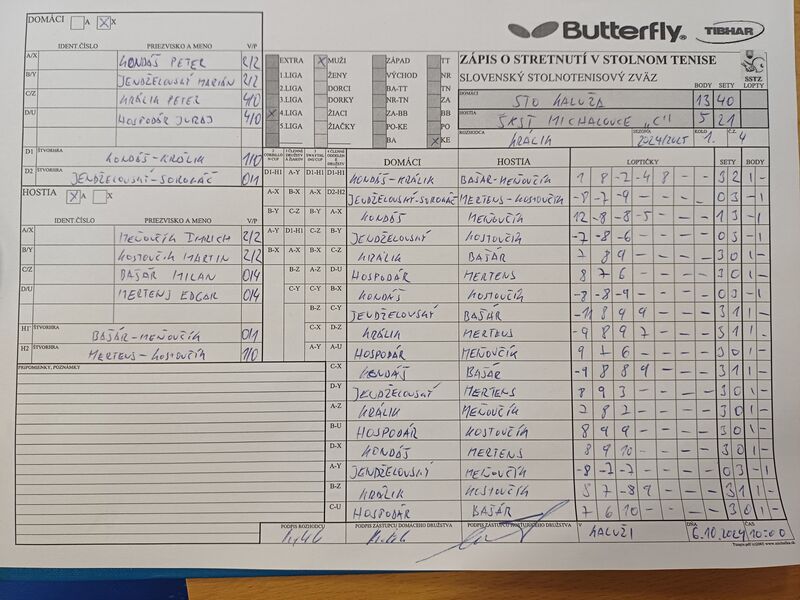 DOMÁCI A X X
Butterfly TIBHAR
IDENT.ČÍSLO PRIEZVISKO A MENO V/P
A/X KONDÁŠ PETER 2/2
B/Y JENDŽELOVSKÝ MARIÁN 2/2
C/Z KRÁLIK PETER 4/0
D/U HOSPODÁR JURAJ 4/0
D1 ŠTVORHRA
KONDÁŠ-KRÁLIK 1/0
D2 ŠTVORHRA
JENDŽELOVSKÝ-SOROKÁČ 0/1
HOSTIA X A X
IDENT.ČÍSLO PRIEZVISKO A MENO V/P
A/X MEŇOVČÍK IMRICH 2/2
B/Y KOSTOVČÍK MARTIN 2/2
C/Z BAŠÁR MILAN 0/4
D/U MERTENS EDGAR 0/4
H1 ŠTVORHRA
BAŠÁR-MEŇOVČÍK 0/1
H2 ŠTVORHRA
MERTENS-KOSTOVČÍK 1/0
PRIPOMIENKY, POZNÁMKY
EXTRA X MUŽI ZÁPAD TT
1.LIGA ŽENY VÝCHOD NR
2.LIGA DORCI BA-TT TN
3.LIGA DORKY NR-TN ZA
X 4.LIGA ŽIACI ZA-BB BB
5.LIGA ŽIAČKY PO-KE PO
BA X KE
ZÁPIS O STRETNUTÍ V STOLNOM TENISE
SLOVENSKÝ STOLNOTENISOVÝ ZVÄZ
SSTZ
BODY SETY LOPTY
DOMÁCI STO KALUŽA 13 40
HOSTIA ŠKST MICHALOVCE "C" 5 21
ROZHODCA KRÁLIK SEZÓNA 2024/2025 KOLO 1. Č. 4
DOMÁCI HOSTIA LOPTIČKY SETY BODY
D1-H1 D1-H1 A-Y D1-H1 KONDÁŠ-KRÁLIK BAŠÁR-MEŇOVČÍK 1 8 -2 -4 8 - - 3 2 1 -
A-X A-X B-X D2-H2 JENDŽELOVSKÝ-SOROKÁČ MERTENS-KOSTOVČÍK -8 -7 -9 - - - - 0 3 - 1
B-Y B-Y C-Z A-X KONDÁŠ MEŇOVČÍK 12 -8 -8 -5 - - - 1 3 - 1
A-Y D1-H1 C-Z B-Y JENDŽELOVSKÝ KOSTOVČÍK -7 -8 -6 - - - - 0 3 - 1
B-X A-X A-X C-Z KRÁLIK BAŠÁR 7 8 9 - - - - 3 0 1 -
B-Z A-Z D-U HOSPODÁR MERTENS 8 7 6 - - - - 3 0 1 -
C-Y C-Y B-X KONDÁŠ KOSTOVČÍK -8 -8 -9 - - - - 0 3 - 1
B-Z C-Y JENDŽELOVSKÝ BAŠÁR -11 8 9 9 - - - 3 1 1 -
C-X D-Z KRÁLIK MERTENS -9 8 9 7 - - - 3 1 1 -
A-Y A-U HOSPODÁR MEŇOVČÍK 9 7 6 - - - - 3 0 1 -
C-X KONDÁŠ BAŠÁR -9 8 8 9 - - - 3 1 1 -
D-Y JENDŽELOVSKÝ MERTENS 8 9 3 - - - - 3 0 1 -
A-Z KRÁLIK MEŇOVČÍK 7 8 2 - - - - 3 0 1 -
B-U HOSPODÁR KOSTOVČÍK 8 9 9 - - - - 3 0 1 -
D-X KONDÁŠ MERTENS 8 9 10 - - - - 3 0 1 -
A-Y JENDŽELOVSKÝ MEŇOVČÍK -8 -7 -7 - - - - 0 3 - 1
B-Z KRÁLIK KOSTOVČÍK 5 7 -8 9 - - - 3 1 1 -
C-U HOSPODÁR BAŠÁR 7 6 10 - - - - 3 0 1 -
PODPIS ROZHODCU PODPIS ZÁSTUPCU DOMÁCEHO DRUŽSTVA PODPIS ZÁSTUPCU HOSŤUJÚCEHO DRUŽSTVA V KALUŽI DŇA 6.10.2024 ČAS 10:00